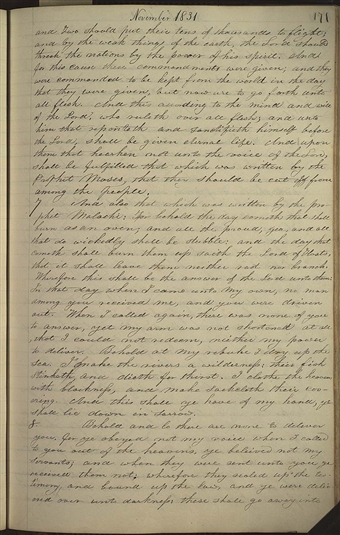 November 1831. 171
and two should put their tens of thousands to flight;
and by the weak things of the earth, the Lord should
thresh the nations by the power of his spirit. And
for this cause these commandments were given; and they
were commanded to be kept from the world in the day
that they were given, but now are to go forth unto
all flesh. And this according to the mind and will
of the Lord, who ruleth over all flesh; and unto
him that repenteth and sanctifieth himself before
the Lord, shall be given eternal life. And upon
them that hearken not unto the voice of the Lord,
shall be fulfilled that which was written by the
Prophet Moses, that they should be cut off from
among the People.
7 And also that which was written by the pro-
phet Malachi: For behold the day cometh that shall
burn as an oven; and all the proud, yea, and all
that do wickedly shall be stubble: and the day that
cometh shall burn them up saith the Lord of Hosts,
that it shall leave them neither root nor branch.
Wherefore this shall be the answer of the Lord unto them:
In that day when I came unto my own, no man
among you received me, and you were driven
out. When I called again, there was none of you
to answer, yet my arm was not shortened at all,
that I could not redeem, neither my power
to deliver. Behold at my rebuke I dry up the
sea. I make the rivers a wilderness: their fish
stinketh, and dieth for thirst. I clothe the heavens
with blackness, and make sackcloth their cov-
ering. And this shall ye have of my hand, ye
shall lie down in sorrow.
8 Behold and lo there are none to deliver
you, for ye obeyed not my voice when I called
to you out of the heavens, ye believed not my
servants; and when they were sent unto you ye
received them not; wherefore they sealed up the tes-
timony and bound up the law, and ye were deliv-
ered over unto darkness: these shall go away into